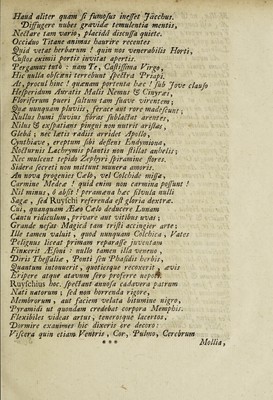 Haud aliter quam si fumosus inesset Jacchus.
Diffugere nubes gravidæ temulentia mentis,
Nectare tam vario, placidâ discussa quiete.
Occiduo Titane animus haurire recentes
Quid vetat herbarum ? quin nos venerabilis Horti,
Custos eximii portis invitat apertis.
Pergamus tutò : nam Te, Castissima Virgo,
Hic nulla obscœni terrebunt spectra Priapi.
At, procul hinc ! quænam portenta hæc ! sub Jove clauso
Hesperidum Auratis Malis Nemus & Cinyræi,
Floriferum pueri saltum tam suave virentem;
Quâ nunquam pluviis, feracæ aut rore madescunt;
Nullus humi fluvius fibras sublactat arentes,
Nilus & exspatians pingui non nutrit aristas,
Glebâ ; nec lætis radiis arridet Apollo,
Cynthiave, ereptum sibi deflens Endymiona,
Nocturnis Lachrymis plantis non stillat anhelis;
Nec mulcent tepido Zephyri spiramine flores.
Sidera secreti non mittunt munera amoris.
An nova progenies Cælo, vel Colchide missa,
Carmine Medeæ ! quid enim non carmina possunt !
Nil minus, ô absit ! peramœna hæc scitula nulli
Sagæ, sed Ruyschi referenda est gloria dextræ.
Cui, quanquam Ææo Cælo deducere Lunam
Cantu ridiculum, privare aut vitibus uvas ;
Grande nefas Magicâ tam tristi accingier arte;
Ille tamen valuit, quod nunquam Colchica, Vates
Pelignus liceat primam reparasse juventam
Finxerit Æsoni : nullo tamen illa veneno,
Diris Thessaliæ, Ponti seu Phasidis herbis,
Quantum intonuerit, quotiesque recoxerit, ævis
Eripere atque atavum sero proferre nepoti
Ruyschius hoc. spectant annosa cadavera patrum
Nati natorum ; sed non horrenda rigore,
Membrorum, aut faciem velata bitumine nigro,
Pyramidi ut quondam credebat corpora Memphis.
Flexibiles videas artus, tenerosque lacertos,
Dormire exanimes hic dixeris ore decoro:
Viscera quin etiam Ventris, Cor, Pulmo, Cerebrum
***
Mollia,